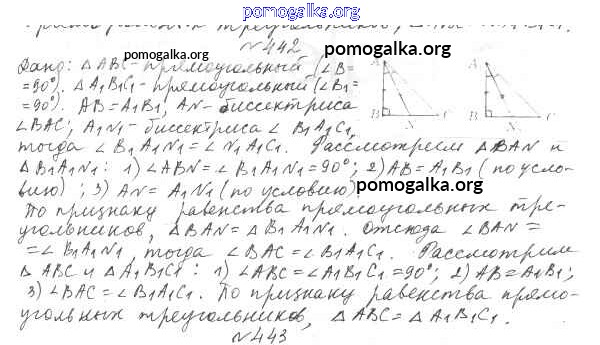 pomogalka.org
N442
pomogalka.org
pomogalka.org
Дано: △ABC - прямоугольный (∠B=
=90°). △A1B1C1 - прямоугольный (∠B1=
=90°). AB=A1B1, AN - биссектриса
∠BAC; A1N1 - биссектриса ∠B1A1C1,
тогда ∠B1A1N1 = ∠N1A1C1. Рассмотрим △BAN и
△B1A1N1: 1) ∠ABN = ∠B1A1N1 = 90°; 2) AB = A1B1 (по усло-
вию); 3) AN = A1N1 (по условию)
pomogalka.org
По признаку равенства прямоугольных тре-
угольников, △BAN = △B1A1N1. Отсюда ∠BAN =
= ∠B1A1N1, тогда ∠BAC = ∠B1A1C1. Рассмотрим
△ABC и △A1B1C1: 1) ∠ABC = ∠A1B1C1 = 90°; 2) AB = A1B1;
3) ∠BAC = ∠B1A1C1. По признаку равенства прямо-
угольных треугольников, △ABC = △A1B1C1.
N443
A
B
N
C
A
B
N
C